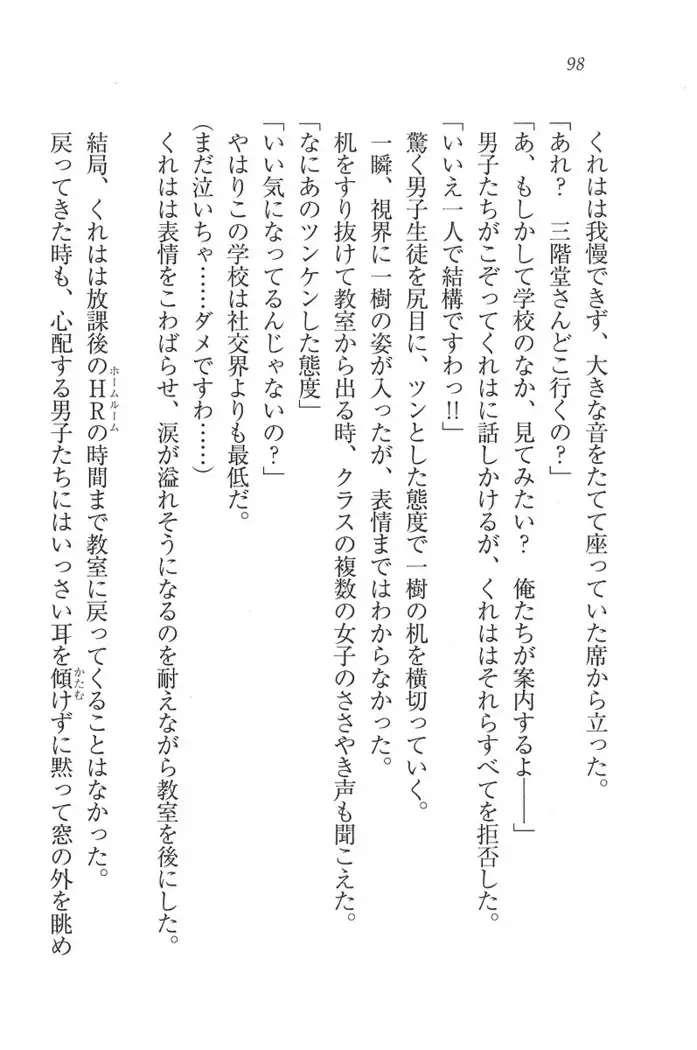 98
くれはは我慢できず、大きな音をたてて座っていた席から立った。
「あれ？　三階堂さんどこ行くの？」
「あ、もしかして学校のなか、見てみたい？　俺たちが案内するよ――」
男子たちがこぞってくれはに話しかけるが、くれははそれらすべてを拒否した。
「いいえ一人で結構ですわっ!!」
驚く男子生徒を尻目に、ツンとした態度で一樹の机を横切っていく。
一瞬、視界に一樹の姿が入ったが、表情まではわからなかった。
机をすり抜けて教室から出る時、クラスの複数の女子のささやき声も聞こえた。
「なにあのツンケンした態度」
「いい気になってるんじゃないの？」
やはりこの学校は社交界よりも最低だ。
（まだ泣いちゃ……ダメですわ……）
くれはは表情をこわばらせ、涙が溢れそうになるのを耐えながら教室を後にした。
結局、くれはは放課後のHRホームルームの時間まで教室に戻ってくることはなかった。
戻ってきた時も、心配する男子たちにはいっさい耳を傾かたむけずに黙って窓の外を眺め